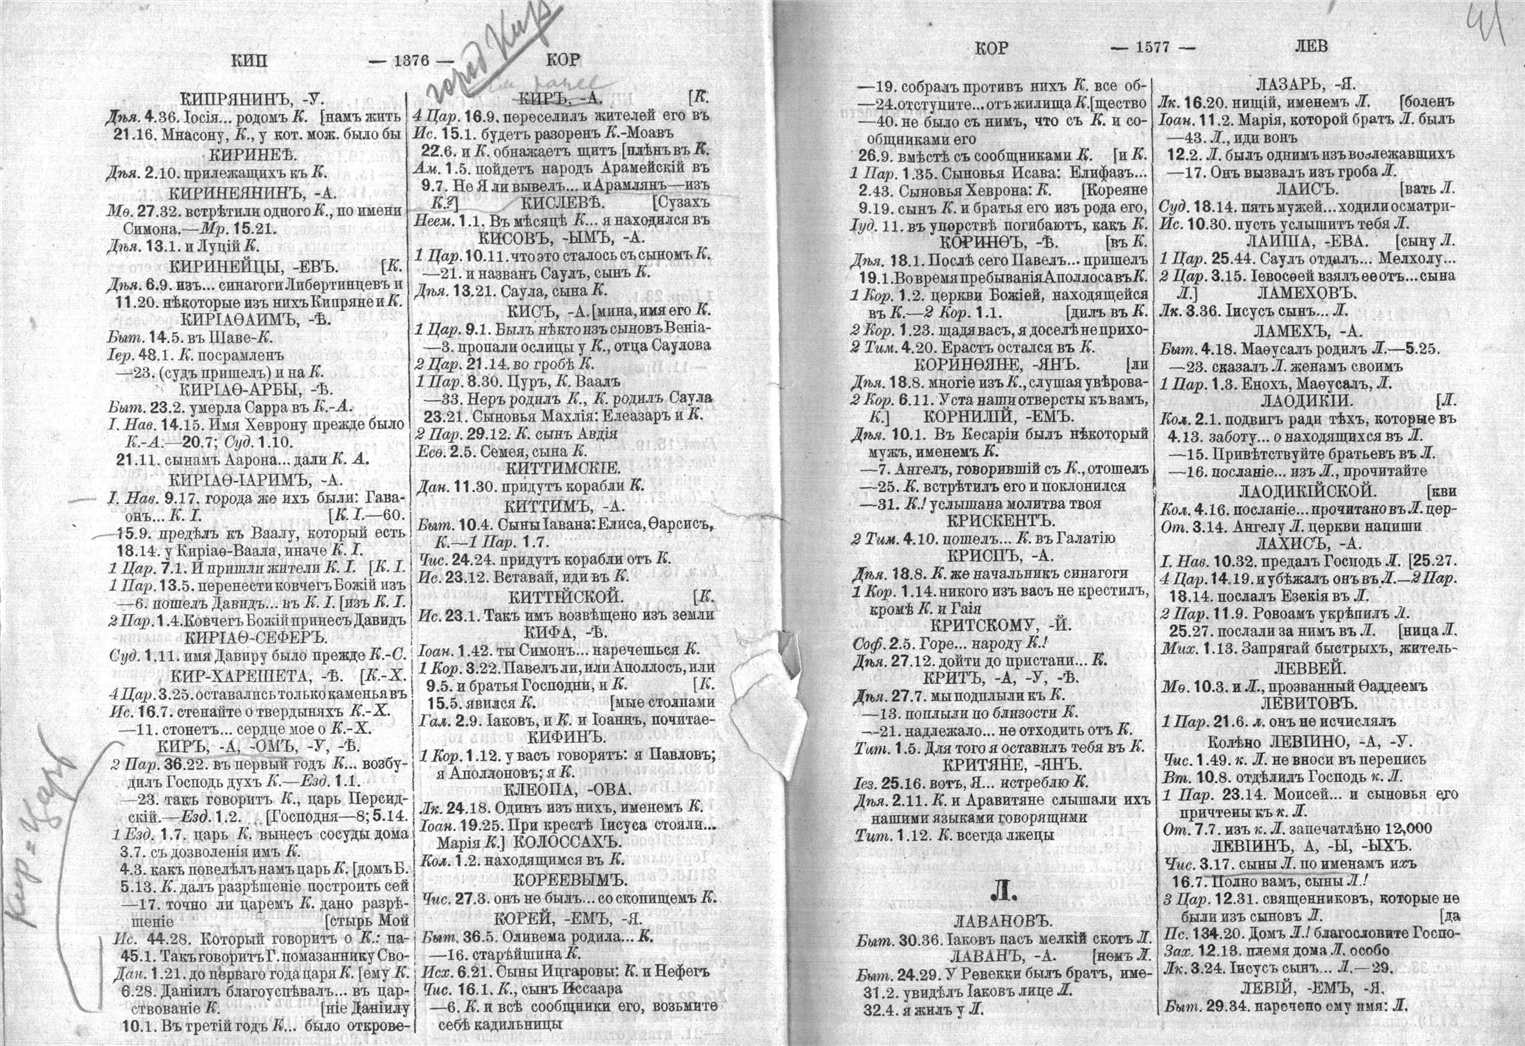 КИП — 1376 — КОР
город Кир
КИПРЯНИНЪ, -У.
Дѣя. 4.36. Іосія... родомъ К. [намъ жить
21.16. Мнасону, К., у кот. мож. было бы
КИРИНЕѢ.
Дѣя. 2.10. прилежащихъ къ К.
КИРИНЕЯНИНЪ, -А.
Мѳ. 27.32. встрѣтили одного К., по имени
Симона.—Мр. 15.21.
Дѣя. 13.1. и Луцій К.
КИРИНЕЙЦЫ, -ЕВЪ. [К.
Дѣя. 6.9. из... синагоги Либертинцевъ и
11.20. нѣкоторые изъ нихъ Кипряне и К.
КИРІАѲАИМЪ, -Ѣ.
Быт. 14.5. въ Шаве-К.
Іер. 48.1. К. посрамленъ
—23. (судъ пришелъ) и на К.
КИРІАѲ-АРБЫ, -Ѣ.
Быт. 23.2. умерла Сарра въ К.-А.
І. Нав. 14.15. Имя Хеврону прежде было
К.-А.—20.7; Суд. 1.10.
21.11. сынамъ Аарона... дали К. А.
КИРІАѲ-ІАРИМЪ, -А.
І. Нав. 9.17. города же ихъ были: Гава-
онъ... К. І. [К. І.—60.
—15.9. предѣлъ къ Ваалу, который есть
18.14. у Киріаѳ-Ваала, иначе К. І.
1 Цар. 7.1. И пришли жители К. І. [К. І.
1 Пар. 13.5. перенести ковчегъ Божій изъ
—6. пошелъ Давидъ... въ К. І. [изъ К. І.
2 Пар. 1.4. Ковчегъ Божій принесъ Давидъ
КИРІАѲ-СЕФЕРЪ.
Суд. 1.11. имя Давиру было прежде К.-С.
КИР-ХАРЕШЕТА, -Ѣ. [К.-Х.
4 Цар. 3.25. оставались только каменья въ
Ис. 16.7. стенайте о твердыняхъ К.-Х.
—11. стонетъ... сердце мое о К.-Х.
КИРЪ, -А, -ОМЪ, -У, -Ѣ.
2 Пар. 36.22. въ первый годъ К... возбу-
дилъ Господь духъ К.—Езд. 1.1.
—23. такъ говоритъ К., царь Персид-
скій.—Езд. 1.2. [Господня—8; 5.14.
1 Езд. 1.7. царь К. вынесъ сосуды дома
3.7. съ дозволенія имъ К.
4.3. какъ повелѣлъ намъ царь К. [домъ Б.
5.13. К. далъ разрѣшеніе построить сей
—17. точно ли царемъ К. дано разрѣ-
шеніе [стырь Мой
Ис. 44.28. Который говоритъ о К.: па-
45.1. Такъ говоритъ Г. помазаннику Сво-
Дан. 1.21. до перваго года царя К. [ему К.
6.28. Даніилъ благоуспѣвалъ... въ цар-
ствованіе К. [ніе Даніилу
10.1. Въ третій годъ К... было открове-
Кир = Царь
КИРЪ, -А. [К.
4 Цар. 16.9. переселилъ жителей его въ
Ис. 15.1. будетъ разоренъ К.-Моавъ
22.6. и К. обнажаетъ щитъ [плѣнъ въ К.
Ам. 1.5. пойдетъ народъ Арамейскій въ
9.7. Не Я ли вывелъ... и Арамлянъ—изъ
К.?] КИСЛЕВѢ. [Сузахъ
Неем. 1.1. Въ мѣсяцѣ К... я находился въ
КИСОВЪ, -ЫМЪ, -А.
1 Цар. 10.11. что это сталось съ сыномъ К.
—21. и названъ Саулъ, сынъ К.
Дѣя. 13.21. Саула, сына К.
КИСЪ, -А. [мина, имя его К.
1 Цар. 9.1. Былъ нѣкто изъ сыновъ Веніа-
—3. пропали ослицы у К., отца Саулова
2 Цар. 21.14. во гробѣ К.
1 Пар. 8.30. Цуръ, К. Ваалъ
—33. Неръ родилъ К., К. родилъ Саула
23.21. Сыновья Махлія: Елеазаръ и К.
2 Пар. 29.12. К. сынъ Авдія
Есѳ. 2.5. Семея, сына К.
КИТТИМСКІЕ.
Дан. 11.30. придутъ корабли К.
КИТТИМЪ, -А.
Быт. 10.4. Сыны Іавана: Елиса, Ѳарсисъ,
К.—1 Пар. 1.7.
Чис. 24.24. придутъ корабли отъ К.
Ис. 23.12. Вставай, иди въ К.
КИТТІЙСКОЙ. [К.
Ис. 23.1. Такъ имъ возвѣщено изъ земли
КИФА, -Ѣ.
Іоан. 1.42. ты Симонъ... наречешься К.
1 Кор. 3.22. Павелъ ли, или Аполлосъ, или
9.5. и братья Господни, и К. [К.
15.5. явился К. [мые столпами
Гал. 2.9. Іаковъ, и К. и Іоаннъ, почитае-
КИФИНЪ.
1 Кор. 1.12. у васъ говорятъ: я Павловъ;
я Аполлоновъ; я К.
КЛЕОПА, -ОВА.
Лк. 24.18. Одинъ изъ нихъ, именемъ К.
Іоан. 19.25. При крестѣ Іисуса стояли...
Марія К.] КОЛОССАХЪ.
Кол. 1.2. находящимся въ К.
КОРЕЕВЫМЪ.
Чис. 27.3. онъ не былъ... со скопищемъ К.
КОРЕЙ, -ЕМЪ, -Я.
Быт. 36.5. Оливема родила... К.
—16. старѣйшина К.
Исх. 6.21. Сыны Ицгаровы: К. и Нефегъ
Чис. 16.1. К., сынъ Иссаара
—6. К. и всѣ сообщники его, возьмите
себѣ кадильницы
КОР — 1577 — ЛЕВ
41
—19. собралъ противъ нихъ К. все об-
—24. отступите... отъ жилища К. [щество
—40. не было съ нимъ, что съ К. и со-
общниками его
26.9. вмѣстѣ съ сообщниками К. [и К.
1 Пар. 1.35. Сыновья Исава: Елифазъ...
2.43. Сыновья Хеврона: К. [Кореяне
9.19. сынъ К. и братья его изъ рода его,
Іуд. 11. въ упорствѣ погибаютъ, какъ К.
КОРИНѲЪ, -Ѣ. [въ К.
Дѣя. 18.1. Послѣ сего Павелъ... пришелъ
19.1. Во время пребыванія Аполлоса въ К.
1 Кор. 1.2. церкви Божіей, находящейся
въ К.—2 Кор. 1.1. [дилъ въ К.
2 Кор. 1.23. щадя васъ, я доселѣ не прихо-
2 Тим. 4.20. Ерастъ остался въ К.
КОРИНѲЯНЕ, -ЯНЪ. [ли
Дѣя. 18.8. многіе изъ К., слушая увѣрова-
2 Кор. 6.11. Уста наши отверсты къ вамъ,
К.] КОРНИЛІЙ, -ЕМЪ.
Дѣя. 10.1. Въ Кесаріи былъ нѣкоторый
мужъ, именемъ К.
—7. Ангелъ, говорившій съ К., отошелъ
—25. К. встрѣтилъ его и поклонился
—31. К.! услышана молитва твоя
КРИСКЕНТЪ.
2 Тим. 4.10. пошелъ... К. въ Галатію
КРИСПЪ, -А.
Дѣя. 18.8. К. же начальникъ синагоги
1 Кор. 1.14. никого изъ васъ не крестилъ,
кромѣ К. и Гаія
КРИТСКОМУ, -Й.
Соф. 2.5. Горе... народу К.!
Дѣя. 27.12. дойти до пристани... К.
КРИТЪ, -А, -У, -Ѣ.
Дѣя. 27.7. мы подплыли къ К.
—13. поплыли по близости К.
—21. надлежало... не отходить отъ К.
Тит. 1.5. Для того я оставилъ тебя въ К.
КРИТЯНЕ, -ЯНЪ.
Іез. 25.16. вотъ, Я... истреблю К.
Дѣя. 2.11. К. и Аравитяне слышали ихъ
нашими языками говорящими
Тит. 1.12. К. всегда лжецы
Л.
ЛАВАНОВЪ.
Быт. 30.36. Іаковъ пасъ мелкій скотъ Л.
ЛАВАНЪ, -А. [немъ Л.
Быт. 24.29. У Ревекки былъ братъ, име-
31.2. увидѣлъ Іаковъ лице Л.
32.4. я жилъ у Л.
ЛАЗАРЬ, -Я.
Лк. 16.20. нищій, именемъ Л. [боленъ
Іоан. 11.2. Марія, которой братъ Л. былъ
—43. Л., иди вонъ
12.2. Л. былъ однимъ изъ возлежавшихъ
—17. Онъ вызвалъ изъ гроба Л.
ЛАИСЪ. [вать Л.
Суд. 18.14. пять мужей... ходили осматри-
Ис. 10.30. пусть услышитъ тебя Л.
ЛАИША, -ЕВА. [сыну Л.
1 Цар. 25.44. Саулъ отдалъ... Мелхолу...
2 Цар. 3.15. Іевосѳей взялъ ее отъ... сына
Л.] ЛАМЕХОВЪ.
Лк. 3.36. Іисусъ сынъ... Л.
ЛАМЕХЪ, -А.
Быт. 4.18. Маѳусалъ родилъ Л.—5.25.
—23. сказалъ Л. женамъ своимъ
1 Пар. 1.3. Енохъ, Маѳусалъ, Л.
ЛАОДИКІИ. [Л.
Кол. 2.1. подвигъ ради тѣхъ, которые въ
4.13. заботу... о находящихся въ Л.
—15. Привѣтствуйте братьевъ въ Л.
—16. посланіе... изъ Л., прочитайте
ЛАОДИКІЙСКОЙ. [кви
Кол. 4.16. посланіе... прочитано въ Л. цер-
От. 3.14. Ангелу Л. церкви напиши
ЛАХИСЪ, -А.
І. Нав. 10.32. предалъ Господь Л. [25.27.
4 Цар. 14.19. и убѣжалъ онъ въ Л.—2 Пар.
18.14. послалъ Езекія въ Л.
2 Пар. 11.9. Ровоамъ укрѣпилъ Л.
25.27. послали за нимъ въ Л. [ница Л.
Мих. 1.13. Запрягай быстрыхъ, житель-
ЛЕВВЕЙ.
Мѳ. 10.3. и Л., прозванный Ѳаддеемъ
ЛЕВИТОВЪ.
1 Пар. 21.6. л. онъ не исчислялъ
Колѣно ЛЕВІИНО, -А, -У.
Чис. 1.49. к. Л. не вноси въ перепись
Вт. 10.8. отдѣлилъ Господь к. Л.
1 Пар. 23.14. Моисей... и сыновья его
причтены къ к. Л.
От. 7.7. изъ к. Л. запечатлѣно 12,000
ЛЕВІИНЪ, А, -Ы, -ЫХЪ.
Чис. 3.17. сыны Л. по именамъ ихъ
16.7. Полно вамъ, сыны Л.!
3 Цар. 12.31. священниковъ, которые не
были изъ сыновъ Л. [да
Пс. 134.20. Домъ Л.! благословите Госпо-
Зах. 12.13. племя дома Л. особо
Лк. 3.24. Іисусъ сынъ... Л.—29.
ЛЕВІЙ, -ЕМЪ, -Я.
Быт. 29.34. наречено ему имя: Л.